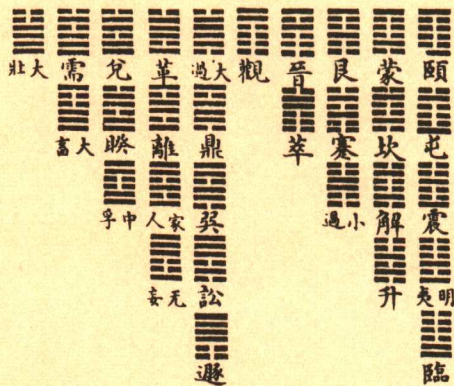 頤屯震明夷臨
蒙坎解升
艮蹇小過
晉萃
觀
大過鼎巽訟遯
革離家人无妄
兌睽中孚
需大畜
大壯